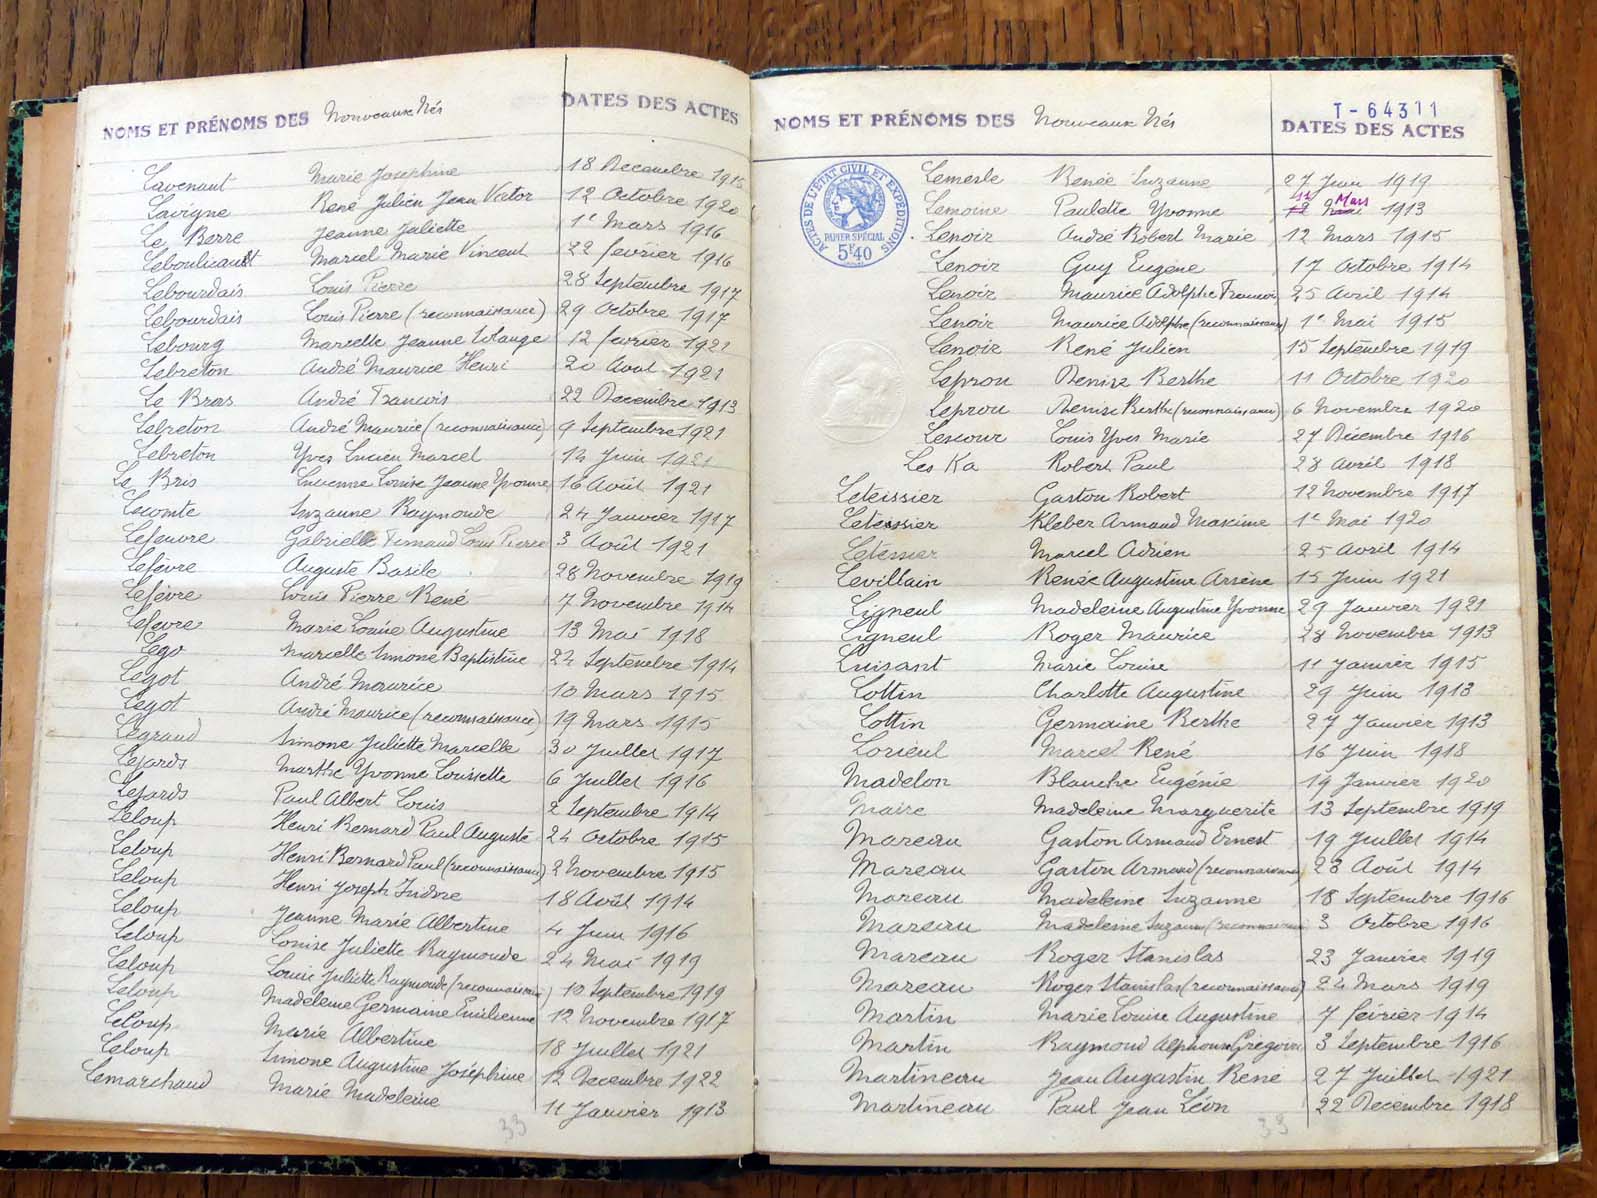 NOMS ET PRÉNOMS DES Nouveaux Nés DATES DES ACTES
Lavenant Marie Joséphine 18 Decembre 1915
Lavigne René Julien Jean Victor 12 Octobre 1920
Le Berre Jeanne Juliette 1e Mars 1916
Leboulicault Marcel Marie Vincent 22 février 1916
Lebourdais Louis Pierre 28 Septembre 1917
Lebourdais Louis Pierre (reconnaissance) 29 Octobre 1917
Lebourg Marcelle Jeanne Solange 12 février 1921
Lebreton André Maurice Henri 20 Aout 1921
Le Bras André Francois 22 Decembre 1913
Lebreton André Maurice (reconnaissance) 9 Septembre 1921
Lebreton Yves Lucien Marcel 14 Juin 1921
Le Bris Lucienne Louise Jeanne Yvonne 16 Août 1921
Lecomte Suzanne Raymonde 24 Janvier 1917
Lefeuvre Gabrielle Fernand Louis Pierre 3 Août 1921
Lefèvre Auguste Basile 28 Novembre 1919
Lefèvre Louis Pierre René 7 Novembre 1914
Lefevre Marie Louise Augustine 13 Mai 1918
Lego Marcelle Simone Baptistine 24 Septembre 1914
Legot André Maurice 10 Mars 1915
Legot André Maurice (reconnaissance) 19 Mars 1915
Legrand Simone Juliette Marcelle 30 Juillet 1917
Lejards Marthe Yvonne Louisette 6 Juillet 1916
Lejards Paul Albert Louis 2 Septembre 1914
Leloup Henri Bernard Paul Auguste 24 Octobre 1915
Leloup Henri Bernard Paul (reconnaissance) 2 Novembre 1915
Leloup Henri Joseph Isidore 18 Août 1914
Leloup Jeanne Marie Albertine 4 Juin 1916
Leloup Louise Juliette Raymonde 24 Mai 1919
Leloup Louise Juliette Raymonde (reconnaissance) 10 Septembre 1919
Leloup Madeleine Germaine Emilienne 12 Novembre 1917
Leloup Marie Albertine 18 Juillet 1921
Leloup Simone Augustine Joséphine 12 Decembre 1922
Lemarchand Marie Madeleine 11 Janvier 1913
33
T-64311
NOMS ET PRÉNOMS DES Nouveaux Nés DATES DES ACTES
ACTES DE L'ÉTAT CIVIL ET EXPÉDITIONS
PAPIER SPÉCIAL
5F40
Lemesle Renée Suzanne 27 Juin 1919
12 Mars
Lemoine Paulette Yvonne 12 Mai 1913
Lenoir André Robert Marie 12 Mars 1915
Lenoir Guy Eugène 17 Octobre 1914
Lenoir Maurice Adolphe Francois 25 Avril 1914
Lenoir Maurice Adolphe (reconnaissance) 1e Mai 1915
Lenoir René Julien 15 Septembre 1919
Leprou Denise Berthe 11 Octobre 1920
Leprou Denise Berthe (reconnaissance) 6 Novembre 1920
Lescour Louis Yves Marie 27 Décembre 1916
Les Ka Robert Paul 28 Avril 1918
Leteissier Gaston Robert 12 Novembre 1917
Leteissier Kleber Armand Maxime 1e Mai 1920
Letessier Marcel Adrien 25 Avril 1914
Levillain Renée Augustine Arsène 15 Juin 1921
Ligneul Madeleine Augustine Yvonne 29 Janvier 1921
Ligneul Roger Maurice 28 Novembre 1913
Luisant Marie Louise 11 Janvier 1915
Lottin Charlotte Augustine 29 Juin 1913
Lottin Germaine Berthe 27 Janvier 1913
Lorieul Marcel René 16 Juin 1918
Madelon Blanche Eugénie 19 Janvier 1920
Maire Madeleine Marguerite 13 Septembre 1919
Mareau Gaston Armand Ernest 19 Juillet 1914
Mareau Gaston Armand (reconnaissance) 28 Août 1914
Mareau Madeleine Suzanne 18 Septembre 1916
Mareau Madeleine Suzanne (reconnaissance) 3 Octobre 1916
Mareau Roger Stanislas 23 Janvier 1919
Mareau Roger Stanislas (reconnaissance) 24 Mars 1919
Martin Marie Louise Augustine 7 février 1914
Martin Raymond Alphonse Grégoire 3 Septembre 1916
Martineau Jean Augustin René 27 Juillet 1921
Martineau Paul Jean Léon 22 Decembre 1918
33